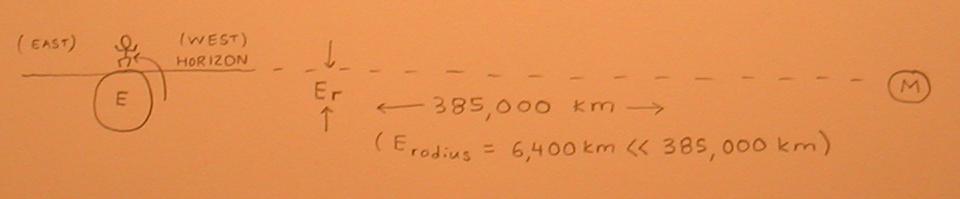 (EAST) (WEST)
HORIZON
E
Er
M
385,000 km
(Eradius = 6,400 km << 385,000 km)